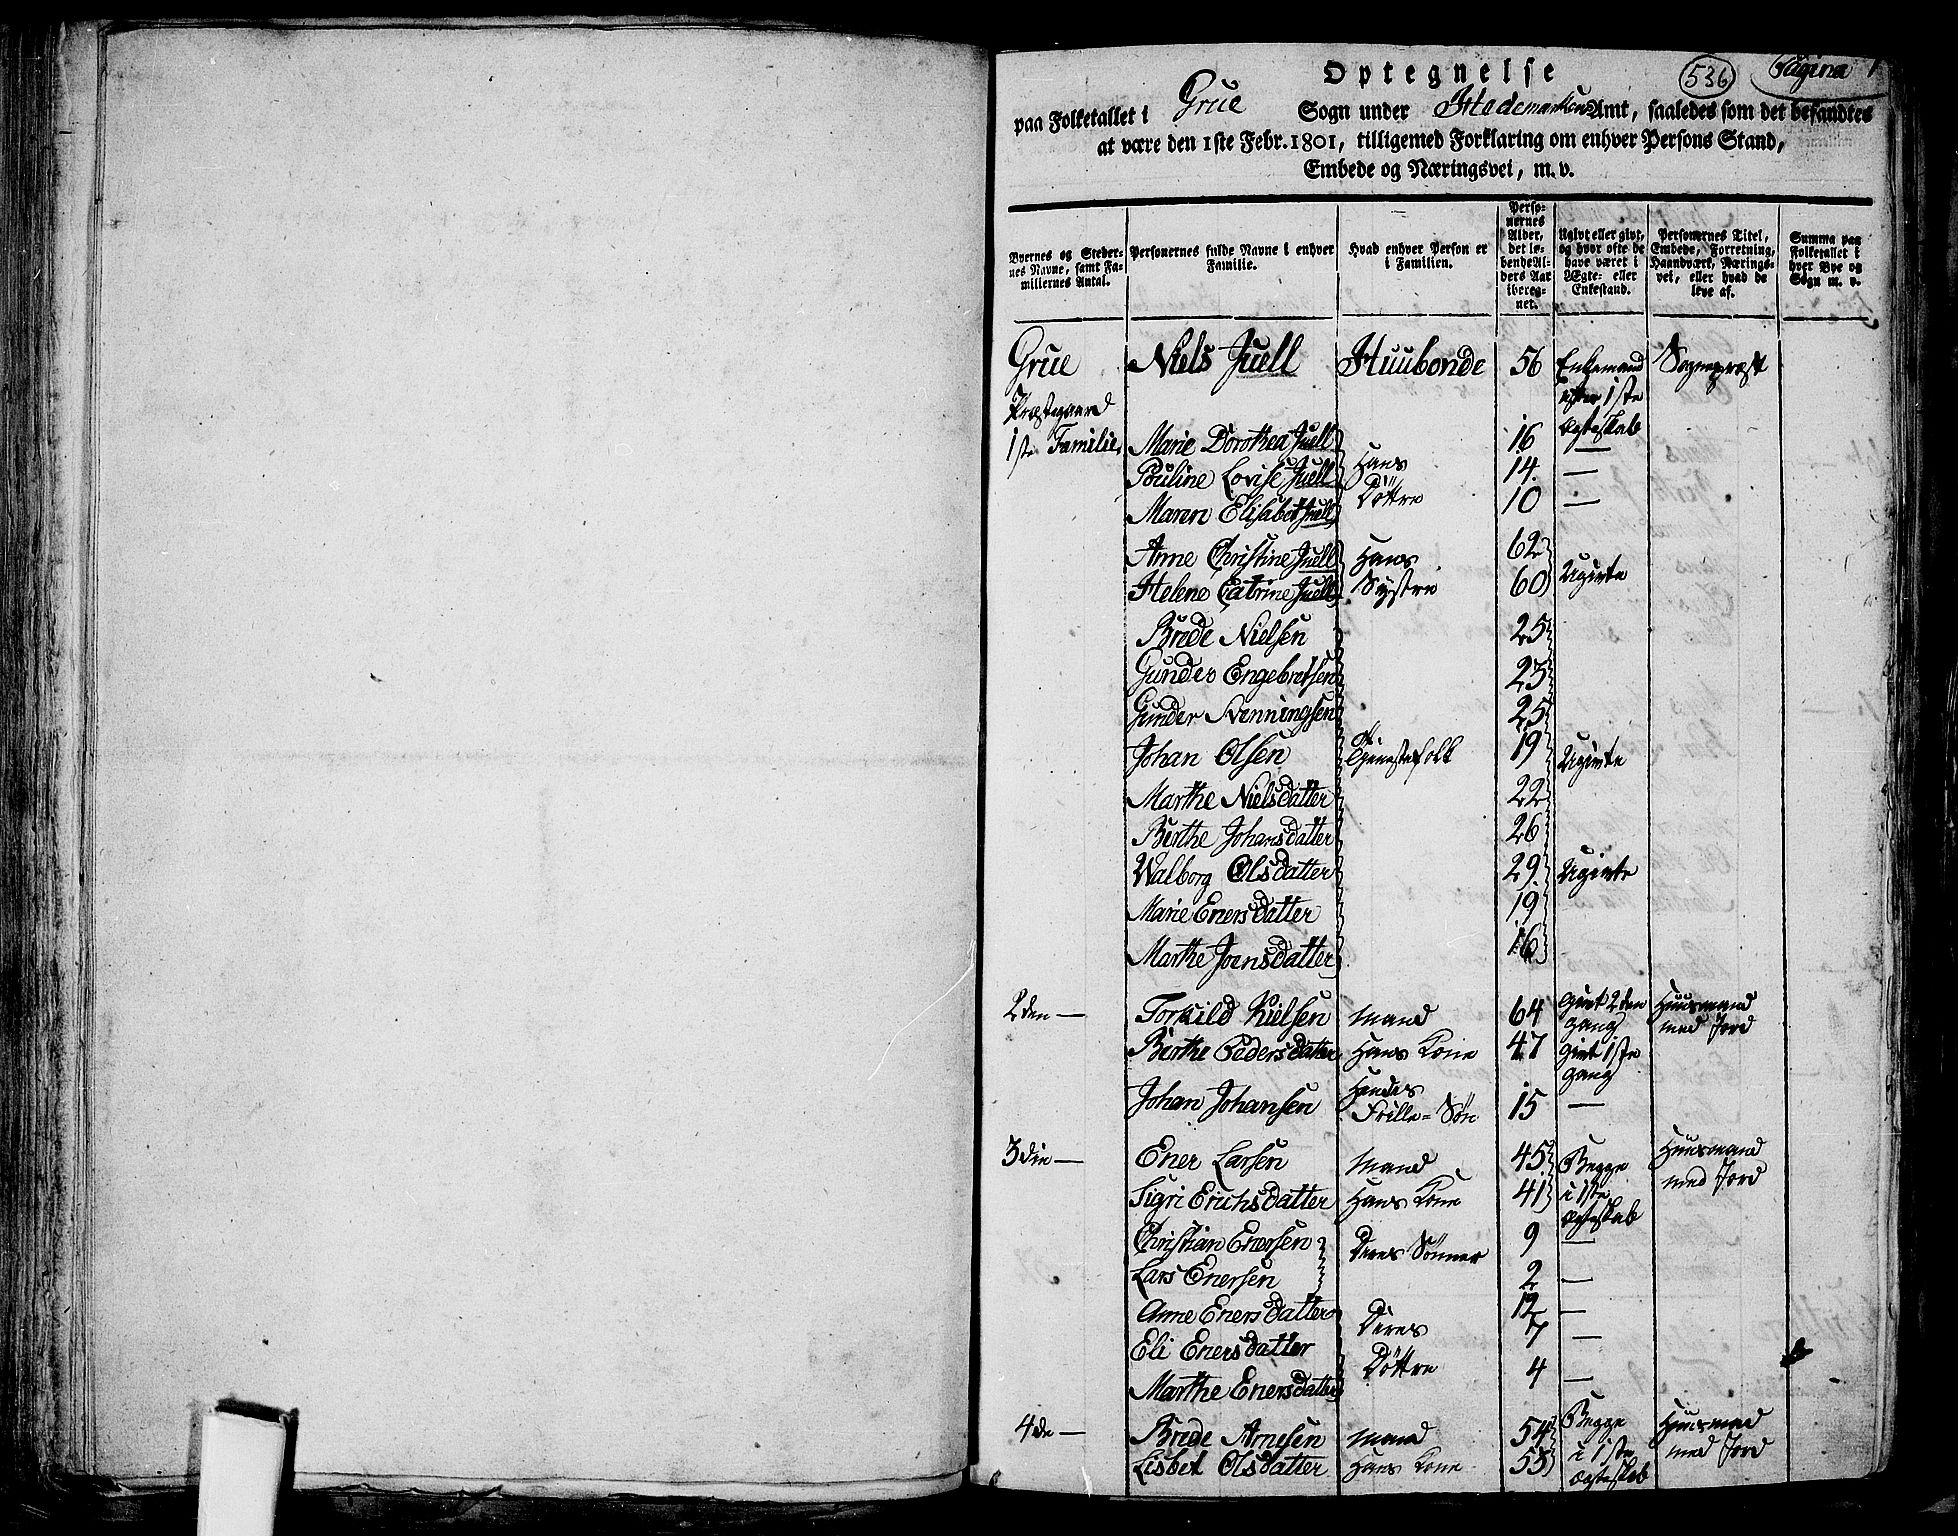 Optegnelse 536 Pagina 1
paa Folketallet i Grue Sogn under Hedemarkens Amt, saaledes som det befandtes
at være den 1ste Febr. 1801, tilligemed Forklaring om enhver Persons Stand,
Embede og Næringsvei, m. v.
Byernes og Stedernes Navne, samt Familiernes Antal.
Personernes fulde Navne i enhver Familie.
Hvad enhver Person er i Familien.
Personernes Alder, det løbende Alders Aar iberegnet.
Ugivt eller givt, og hvor ofte de have været i Ægte- eller Enkestand.
Personernes Titel, Embede, Forretning, Haandværk, Næringsvei, eller hvad de leve af.
Summa paa Folketallet i hver Bye og Sogn m. v.
Grue Niels Juell Huusbonde 56 Enkemand Sogneprest
Præstegaard efter 1ste
1ste Familie Marie Dorothea Juell Hans 16 egteskab
Pouline Lovise Juell Döttre 14 —
Maren Elisabet Juell 10 —
Anne Christine Juell Hans 62
Helene Catrine Juell Systre 60 Ugivte
Brede Nielsen 25
Gunder Engebretsen 25
Gunder Svenningsen 25
Johan Olsen Tjenestefolk 19 Ugivte
Marthe Nielsdatter 22
Berthe Johansdatter 26
Walborg Olsdatter 29 Ugivte
Marie Enersdatter 19
Marthe Joensdatter 16
2den — Torkild Nielsen Mand 64 givt 2den gang Huusmand med Jord
Berthe Pedersdatter Hans Kone 47 givt 1ste gang
Johan Johansen Hendes Frille-Sön 15 —
3die — Ener Larsen Mand 45 Begge Huusmand
Sigri Erichsdatter Hans Kone 41 i 1ste egteskab med Jord
Christian Enersen Deres Sönner 9 —
Lars Enersen 2 —
Anne Enersdatter Deres 12 —
Eli Enersdatter Döttre 7 —
Marthe Enersdatter 4 —
4de — Brede Arnesen Mand 54 Begge Huusmand
Lisbet Olsdatter Hans Kone 55 i 1ste egteskab med Jord